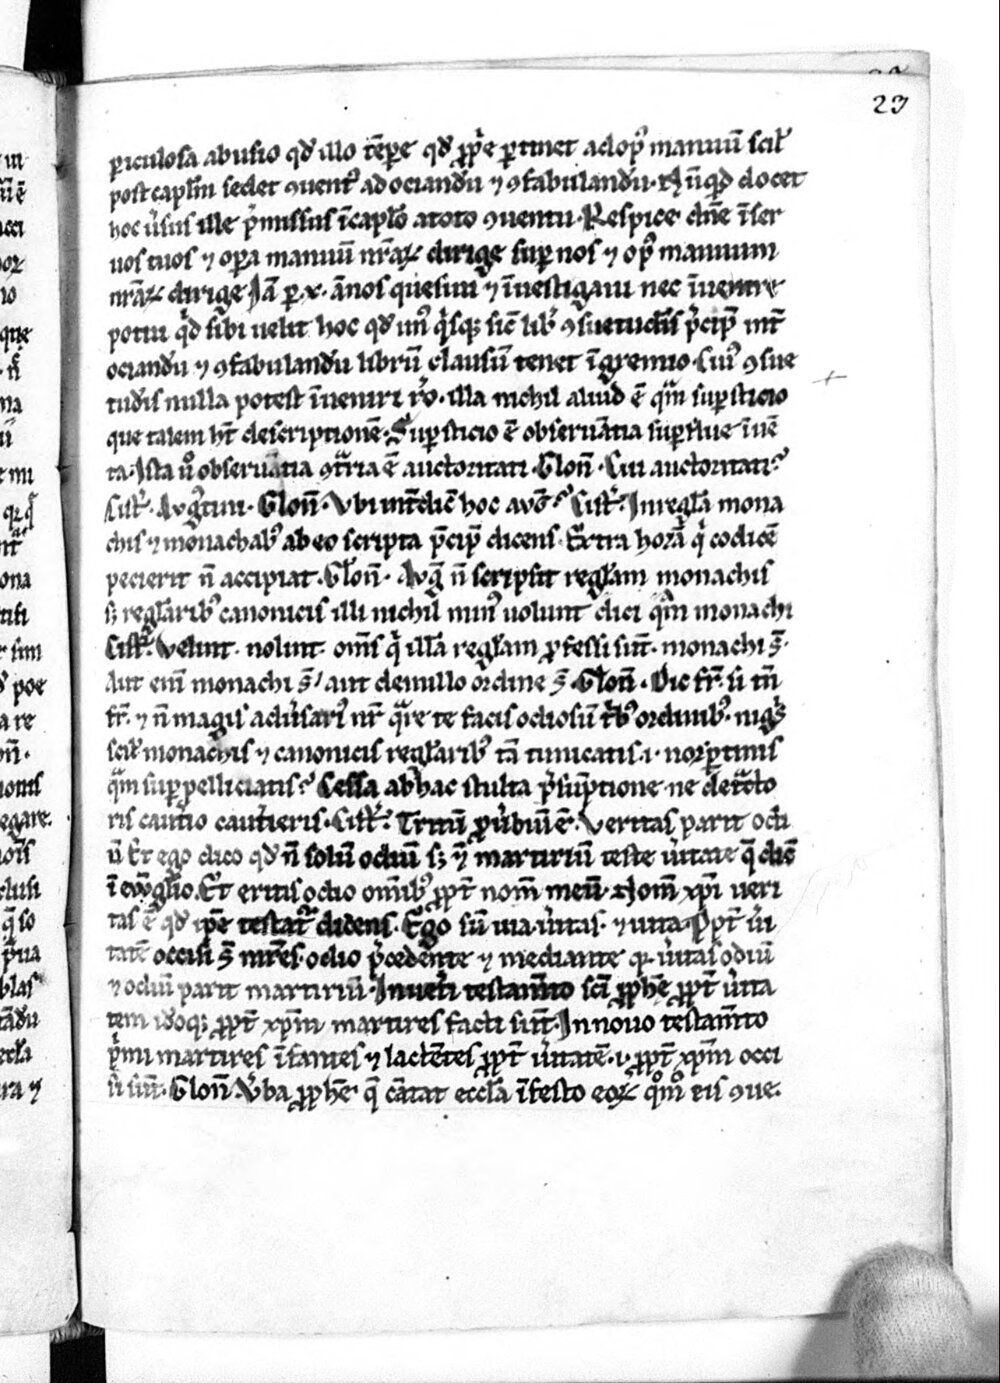 23
periculosa abusio qd̄ illo tēpe qd̄ ꝓp̄e ꝑtinet ad opꝰ manuū scil'
post capl̄m sedet ꝯuentꝰ ad ociandū ⁊ ꝯfabulandū. N̄ūqd docet
hoc ūsus ille p̄missus ī caplō a toto ꝯuentu. Respice dn̄e ī ser
uos tuos ⁊ oꝑa manuū nr̄aꝝ dirige suꝑ nos ⁊ opꝰ manuum
nr̄aꝝ dirige Iā ꝑ .x. ānos quesiui ⁊ īuestigaui nec īuenire
potui qd̄ sibi uelit hoc qd̄ unꝰ qisqꝫ sic̄ libꝰ ꝯsuetudīs p̄cipit int̄
ociandū ⁊ ꝯfabulandū librū clausū tenet ī gremio. Suiꝰ ꝯsue
tudīs nulla potest īueniri rō. illa nichil aliud ē qm̄ suꝑsticio
que talem ht̄ descriptionē. Suꝑsticio ē obseruātia suꝑflue īuē
ta. Ista u̓o obseruātia ꝯtͣria ē auctoritati. Clun̄. Cui auctoritati?
Cist̄. Avgꝰtini. Clun̄. Vbi int̄ dic̄ hoc avḡ? Cist̄. In regl̄a mona
chis ⁊ monachabꝰ ab eo scripta p̄cipit dicens. Extra horā qi codicē
pecierit n̄ accipiat. Clun̄. Avḡ n̄ scripsit regl̄am monachis
sꝫ regl̄aribꝰ canonicis illi nichil minꝰ uolunt dici qm̄ monachi
Cist̄. Velint. nolint. oms̄ qi illā regl̄am ꝓfessi sūt. monachi s̄.
Aut eni monachi s̄, aut de nullo ordine s̄. Clun̄. Dic fr̄. si tn̄
fr̄. ⁊ n̄ magis adūsariꝰ nr̄ qͣre te facis odiosū t̓bꝰ ordinibꝰ. nigͥs
scil' monachis ⁊ canonicis regl̄aribꝰ tā tunicatis .i. norptinis
qͣm suꝑpelliciatis? Cessa ab hac stulta p̄sūptione ne detͣcto
ris cauterio cauterieris. Cist̄. Tritū ꝓu̓biū ē. Veritas parit odi
ū Et ego dico qd̄ n̄ solū odiū sꝫ ⁊ martiriū teste u̓itate q̄ dic̄
ī ewg̓lio. Et eritis odio omībꝰ ꝓpt̄ nom̄ meū. Nom̄ xp̄i ueri
tas ē qd̄ ip̄e testatͣ dicens. Ego sū uia u̓itas. ⁊ uita. Ꝓpt̄ u̓i
tatē occisi s̄ mr̄es. odio p̄cedente ⁊ mediante q̄ u̓itas odiū
⁊ odiū parit martiriū. In uet̓i testam̄to sc̄i ꝓph̄e ꝓpt̄ u̓ita
tem idoqꝫ ꝓpt̄ xp̄m martires facti sūt. In nouo testam̄to
p̓mi martires īfantes ⁊ lactētes ꝓpt̄ u̓itatē .i. ꝓpt̄ xp̄m occi
si sūt. Clun̄. V̓ba ꝓph̄e q̄ cātat eccl̄a ī festo eoꝝ qͦmͦ eis ꝯue.